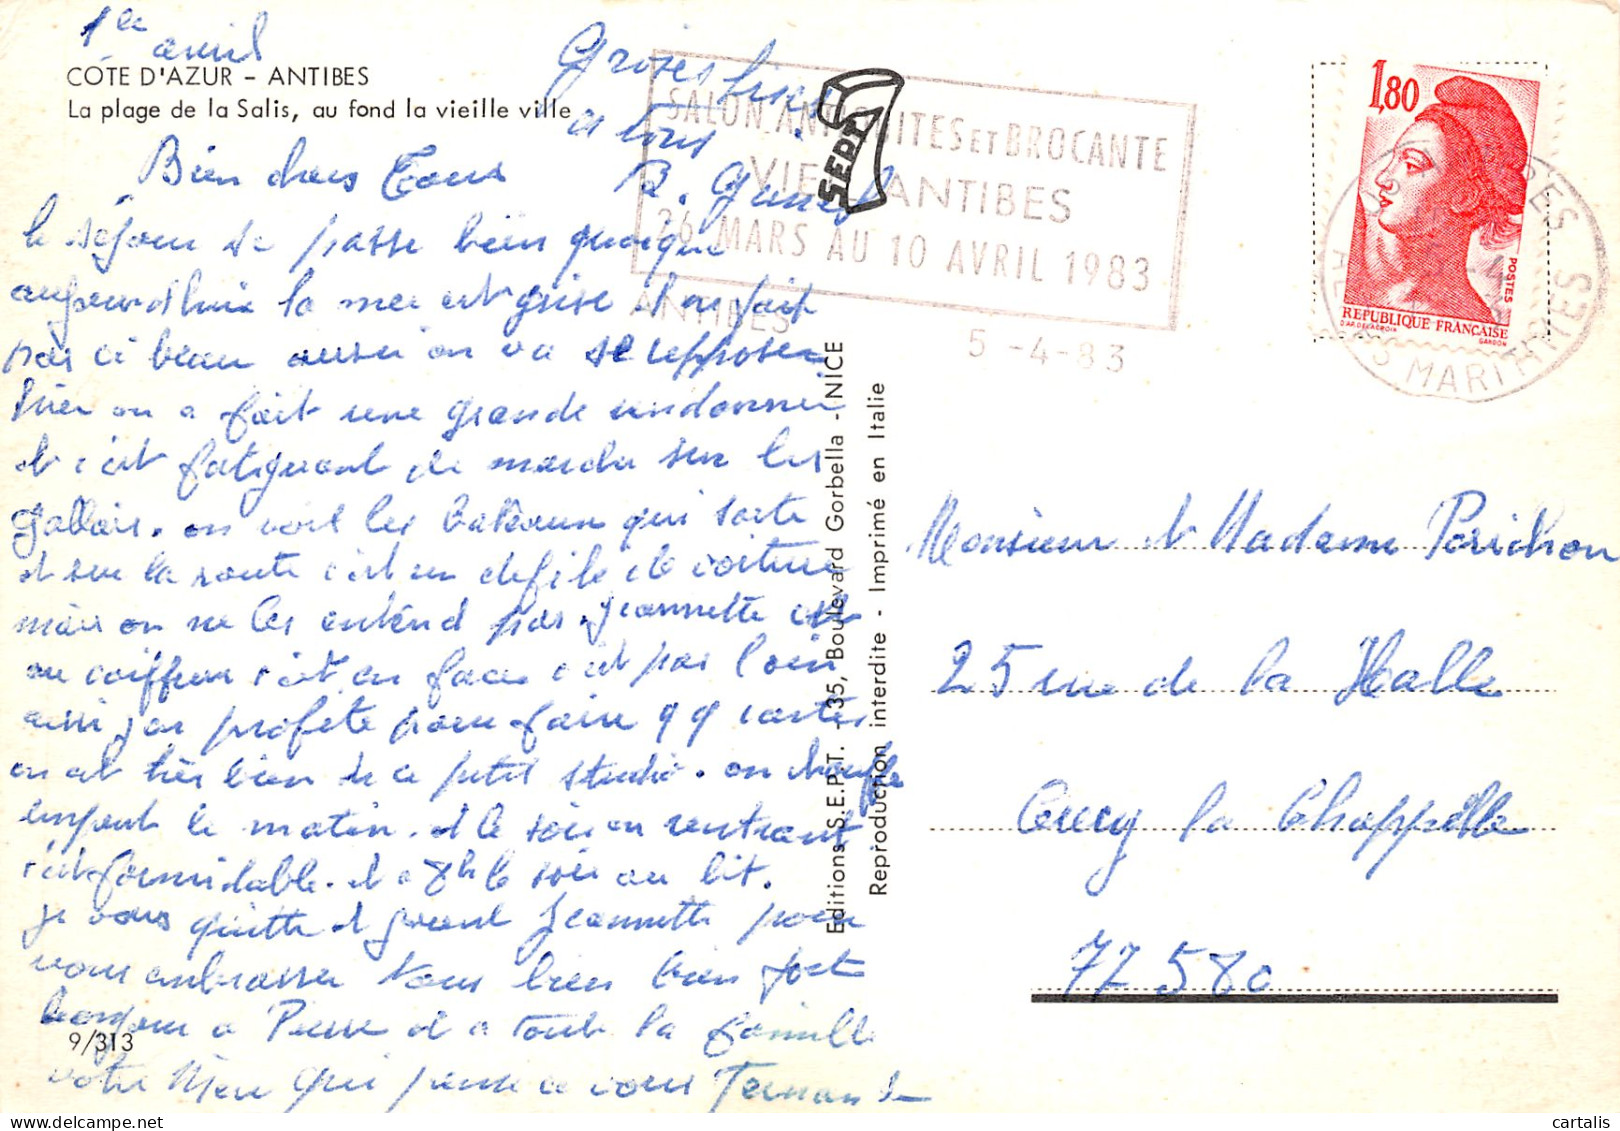 1er avril
COTE D'AZUR - ANTIBES
La plage de la Salis, au fond la vieille ville
Bien chers Tous
le séjour se passe bien quoique
aujourd'huis la mer est grise il ne fait
pas si beau aussi on va se repposer
hier on a fait une grande randonner
et c'est fatiguant de marcher sur les
gallais. on voit les bateaux qui sorte
et sur la route c'est un defilé de voiture
mais on ne les entend pas. Jeannette est
au coiffeur c'est en face c'est pas loin
ainsi j'en profite pour faire qq cartes
on est très bien de ce petit studio. on chauffe
un peut le matin. et le soir en rentrant
c'est formidable. et a 8h le soir au lit.
je vous quitte et prend Jeannette pour
vous embrasser tous bien bien fort
bonjour a Pierre et a toute la famille
votre Mère qui pense a vous Fernande
Groses bises
a tous
B.
9/313
Editions S.E.P.T. - 35, Boulevard Gorbella - NICE
Reproduction interdite - Imprimé en Italie
SEPT
SALON ANTIQUITES ET BROCANTE
VIEIL ANTIBES
26 MARS AU 10 AVRIL 1983
ANTIBES
5 -4-83
1,80
POSTES
REPUBLIQUE FRANÇAISE
D'AP. DELACROIX
GANDON
ALPES MARITIMES
Monsieur et Madame Perichon
25 rue de la Halle
Crecy la Chappelle
77580
cartalis